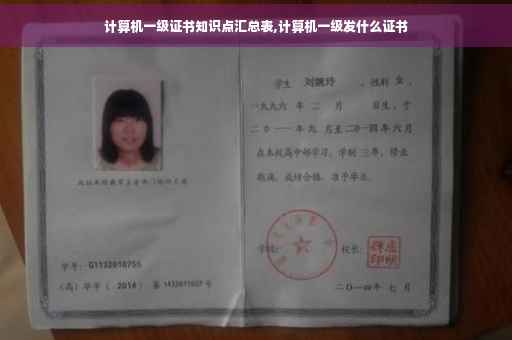 计算机一级证书知识点汇总表,计算机一级发什么证书
学生 刘婉玲 ，性别 女 ，
一九九六 年 二 月 日生，于
二〇一一 年 九 月至 二〇一四 年 六 月
在本校高中部学习，学制 三年，修业
期满，成绩合格，准予毕业。
学号： G1132010755
校长：
（高）毕字（ 2014 ）第 1432011027 号
二〇一四年 七 月